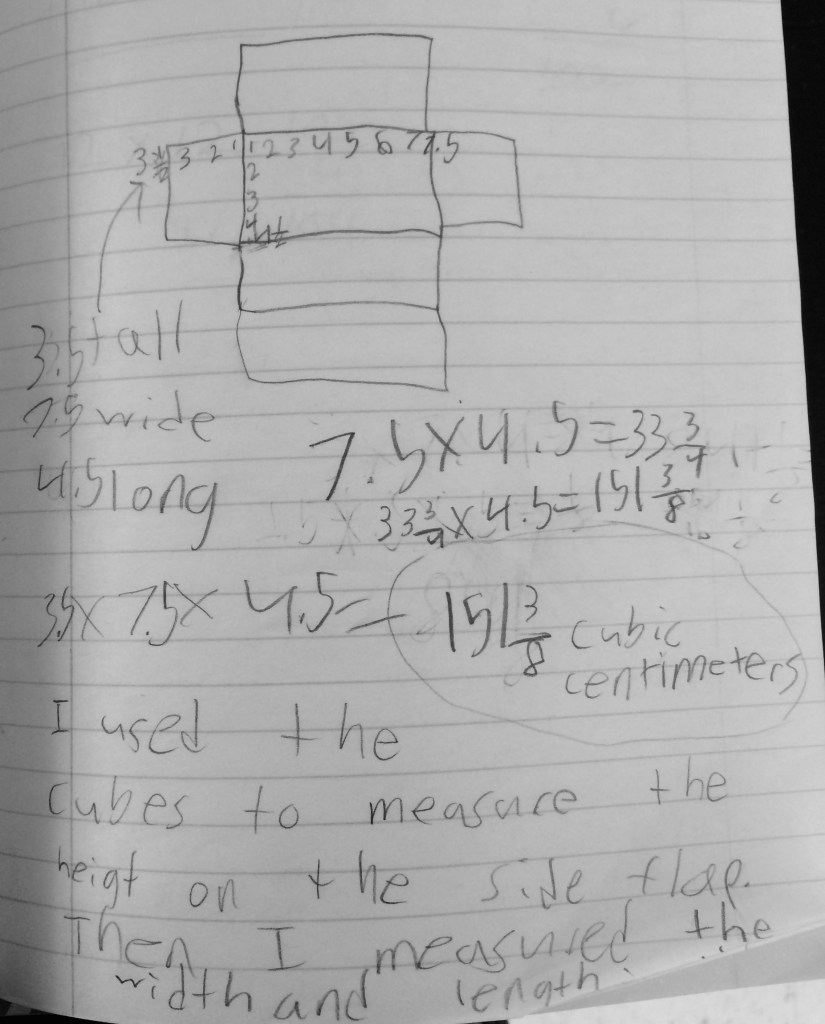 3 1/2 3 2 1 1 2 3 4 5 6 7 7.5
2
3
4 4 1/2
3.5 tall
7.5 wide
4.5 long
7.5 x 4.5 = 33 3/4
33 3/4 x 4.5 = 151 3/8
3.5 x 7.5 x 4.5 = 151 3/8 cubic
centimeters
I used the
cubes to measure the
heigt on the side flap.
Then I measured the
width and length.